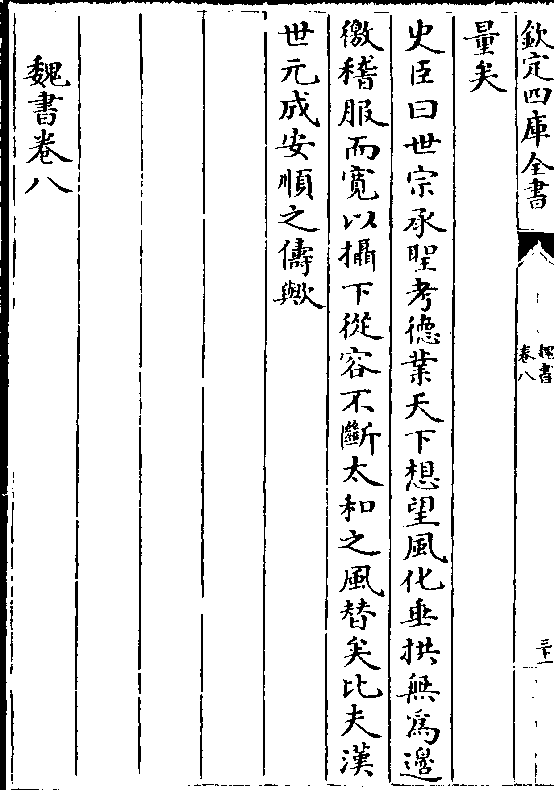 欽定四庫全書
魏書
卷八
三十一
量矣
史臣曰世宗承聖考德業天下想望風化垂拱無為邊
徼稽服而寛以攝下從容不斷太和之風替矣比夫漢
世元成安順之儔歟
魏書卷八